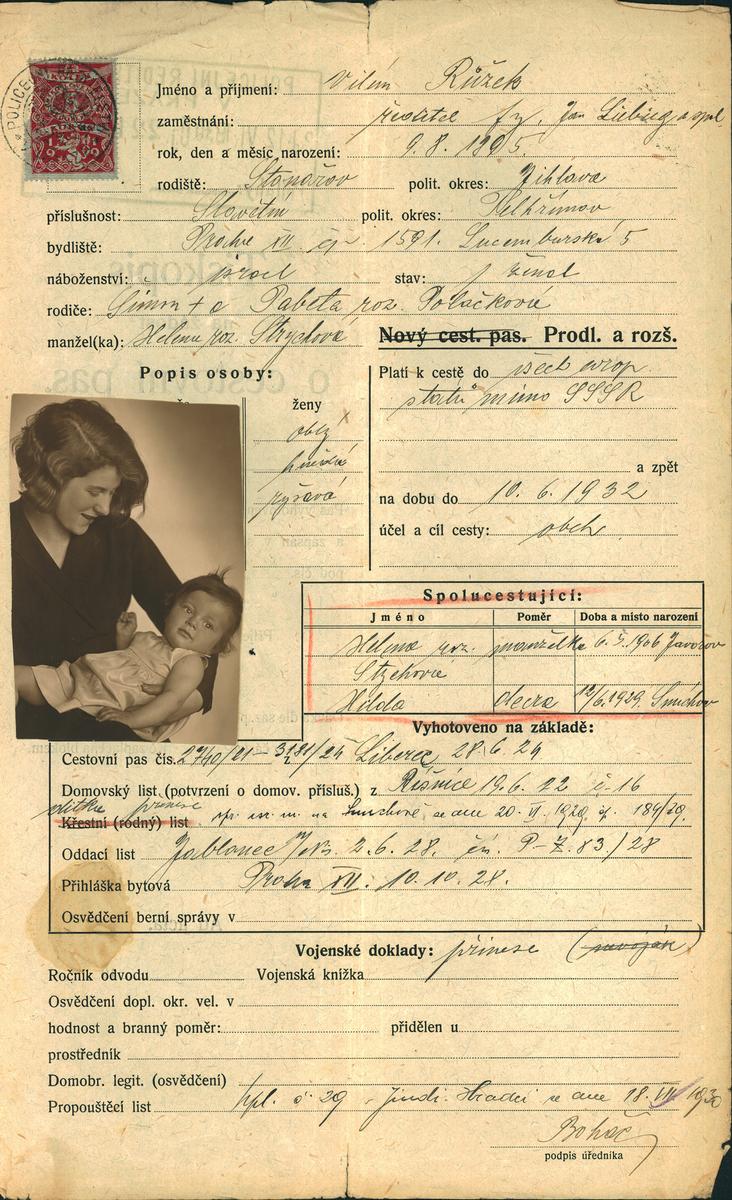 Jméno a příjmení: Vilém Růžek
zaměstnání: ředitel fy. Jan Liebieg a spol.
rok, den a měsíc narození: 9. 8. 1905
rodiště: Stonařov polit. okres: Jihlava
příslušnost: polit. okres: Pelhřimov
bydliště: Praha XII čp 1591. Lucemburská 5
náboženství: stav: ženat
rodiče: Babeta roz. Polačková
manžel(ka): Helena roz. Strychová
Nový cest. pas. Prodl. a rozš.
Popis osoby:
ženy
hnědá
ryšavá
Platí k cestě do všech evrop.
států mimo SSSR
a zpět
na dobu do 10. 6. 1932
účel a cíl cesty: obch
Spolucestující:
Jméno Poměr Doba a místo narození
Helena roz. manželka 6. 5. 1906
Hilda dcera 12/6. 1929. Smíchov
Vyhotoveno na základě:
Cestovní pas čís. 2740/21 Liberec 28. 6. 24
Domovský list (potvrzení o domov. přísluš.) z 19. 6. 22 č. 16
přinese
Křestní (rodný) list na Smíchově ze dne 20. VI. 1929 čj. 184/29.
Oddací list Jablonec n/N. 2. 6. 28. 83/28
Přihláška bytová Praha XII. 10. 10. 28.
Osvědčení berní správy v
Vojenské doklady: přinese (nevoják)
Ročník odvodu Vojenská knížka
Osvědčení dopl. okr. vel. v
hodnost a branný poměr: přidělen u
prostředník
Domobr. legit. (osvědčení)
Propouštěcí list hpl. č 29 Jindř. Hradci ze dne 18. VII 1930
Boháč
podpis úředníka